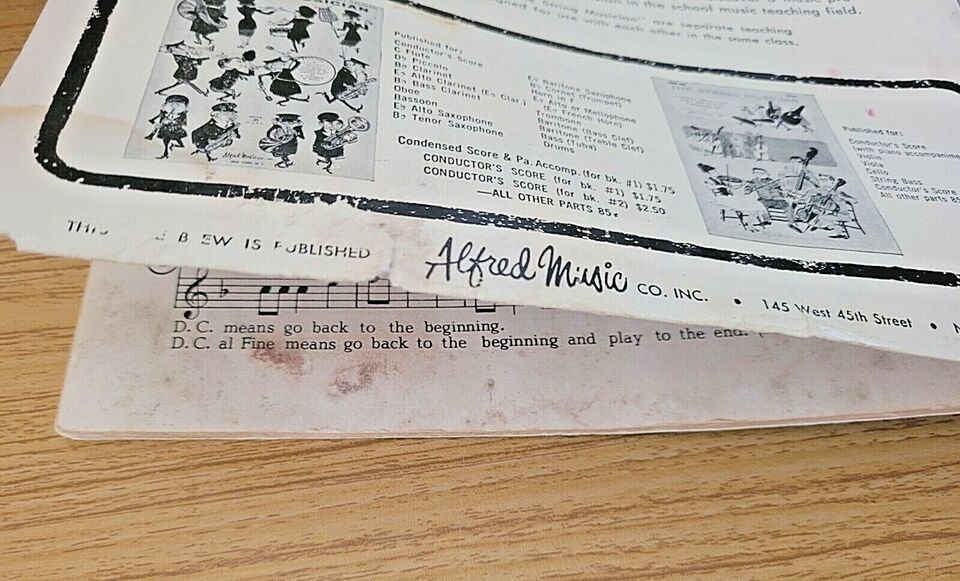 in the school music teaching field.
String Musician" are separate teaching
for use with each other in the same class.
Published for:
Conductor's Score
C Flute
D♭ Piccolo
B♭ Clarinet
E♭ Alto Clarinet (E♭ Clar.)
B♭ Bass Clarinet
Oboe
Bassoon
E♭ Alto Saxophone
B♭ Tenor Saxophone
E♭ Baritone Saxophone
B♭ Cornet (Trumpet)
Horn in F (Mellophone
E♭ Alto (E♭ French Horn)
Trombone
Baritone (Bass Clef)
Baritone (Treble Clef)
Bass (Tuba)
Drums
Condensed Score & Pa. Accomp. (for bk. #1) $1.75
CONDUCTOR'S SCORE (for bk. #1) $1.75
CONDUCTOR'S SCORE (for bk. #2) $2.50
—ALL OTHER PARTS 85¢
Published for:
Conductor's Score
with piano accompanime
Violin
Viola
Cello
String Bass
Conductor's Score
All other parts 85
IS PUBLISHED
Alfred Music CO. INC. • 145 West 45th Street •
D. C. means go back to the beginning.
D. C. al Fine means go back to the beginning and play to the end.